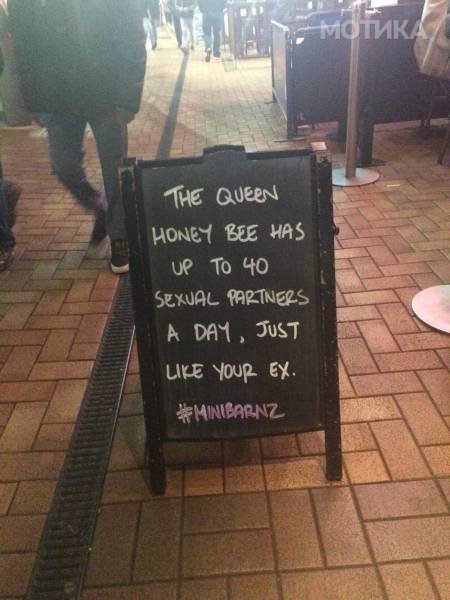 МОТИКА
THE QUEEN
HONEY BEE HAS
UP TO 40
SEXUAL PARTNERS
A DAY, JUST
LIKE YOUR EX.
#MINIBARNZ